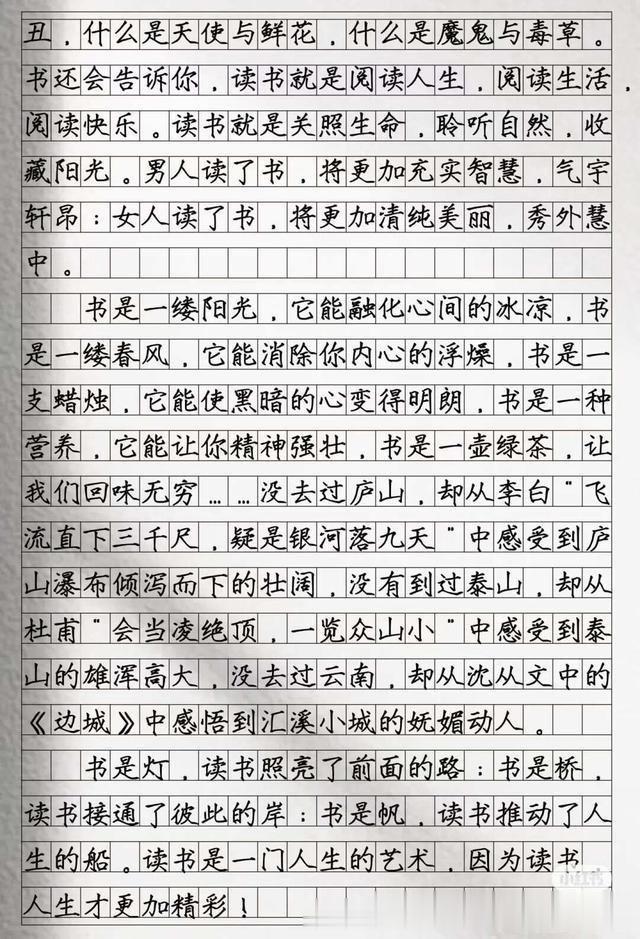 丑，什么是天使与鲜花，什么是魔鬼与毒草。
书还会告诉你，读书就是阅读人生，阅读生活，
阅读快乐。读书就是关照生命，聆听自然，收
藏阳光。男人读了书，将更加充实智慧，气宇
轩昂：女人读了书，将更加清纯美丽，秀外慧
中。
书是一缕阳光，它能融化心间的冰凉，书
是一缕春风，它能消除你内心的浮燥，书是一
支蜡烛，它能使黑暗的心变得明朗，书是一种
营养，它能让你精神强壮，书是一壶绿茶，让
我们回味无穷……没去过庐山，却从李白“飞
流直下三千尺，疑是银河落九天”中感受到庐
山瀑布倾泻而下的壮阔，没有到过泰山，却从
杜甫“会当凌绝顶，一览众山小”中感受到泰
山的雄浑高大，没去过云南，却从沈从文中的
《边城》中感悟到汇溪小城的妩媚动人。
书是灯，读书照亮了前面的路：书是桥，
读书接通了彼此的岸：书是帆，读书推动了人
生的船。读书是一门人生的艺术，因为读书
人生才更加精彩！
小红书